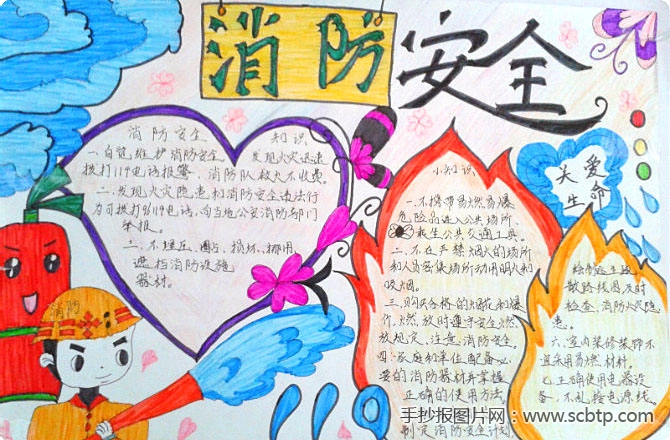 消防安全
消防安全 知识
一、自觉维护消防安全,发现火灾迅速
拨打119电话报警,消防队救火不收费。
二、发现火灾隐患和消防安全违法行
为可拨打96119电话,向当地公安消防部门
举报。
三、不埋压、圈占、损坏、挪用、
遮挡消防设施
器材。
消防
小知识
一、不携带易燃易爆
危险品进入公共场所、
乘坐公共交通工具。
二、不在严禁烟火的场所
和人员密集场所动用明火和
吸烟。
三、购买合格的烟花和爆
竹,燃放时遵守安全燃
放规定,注意消防安全。
四、家庭和单位配备必
要的消防器材并掌握
正确的使用方法。
制定消防安全计划
关爱
生命
绘制逃生疏
散路线图,及时
检查、消防火灾隐
患。
六、室内装修装饰不
宜采用易燃材料。
七、正确使用电器设
备,不乱接电源线。
手抄报图片网:www.scbtp.com